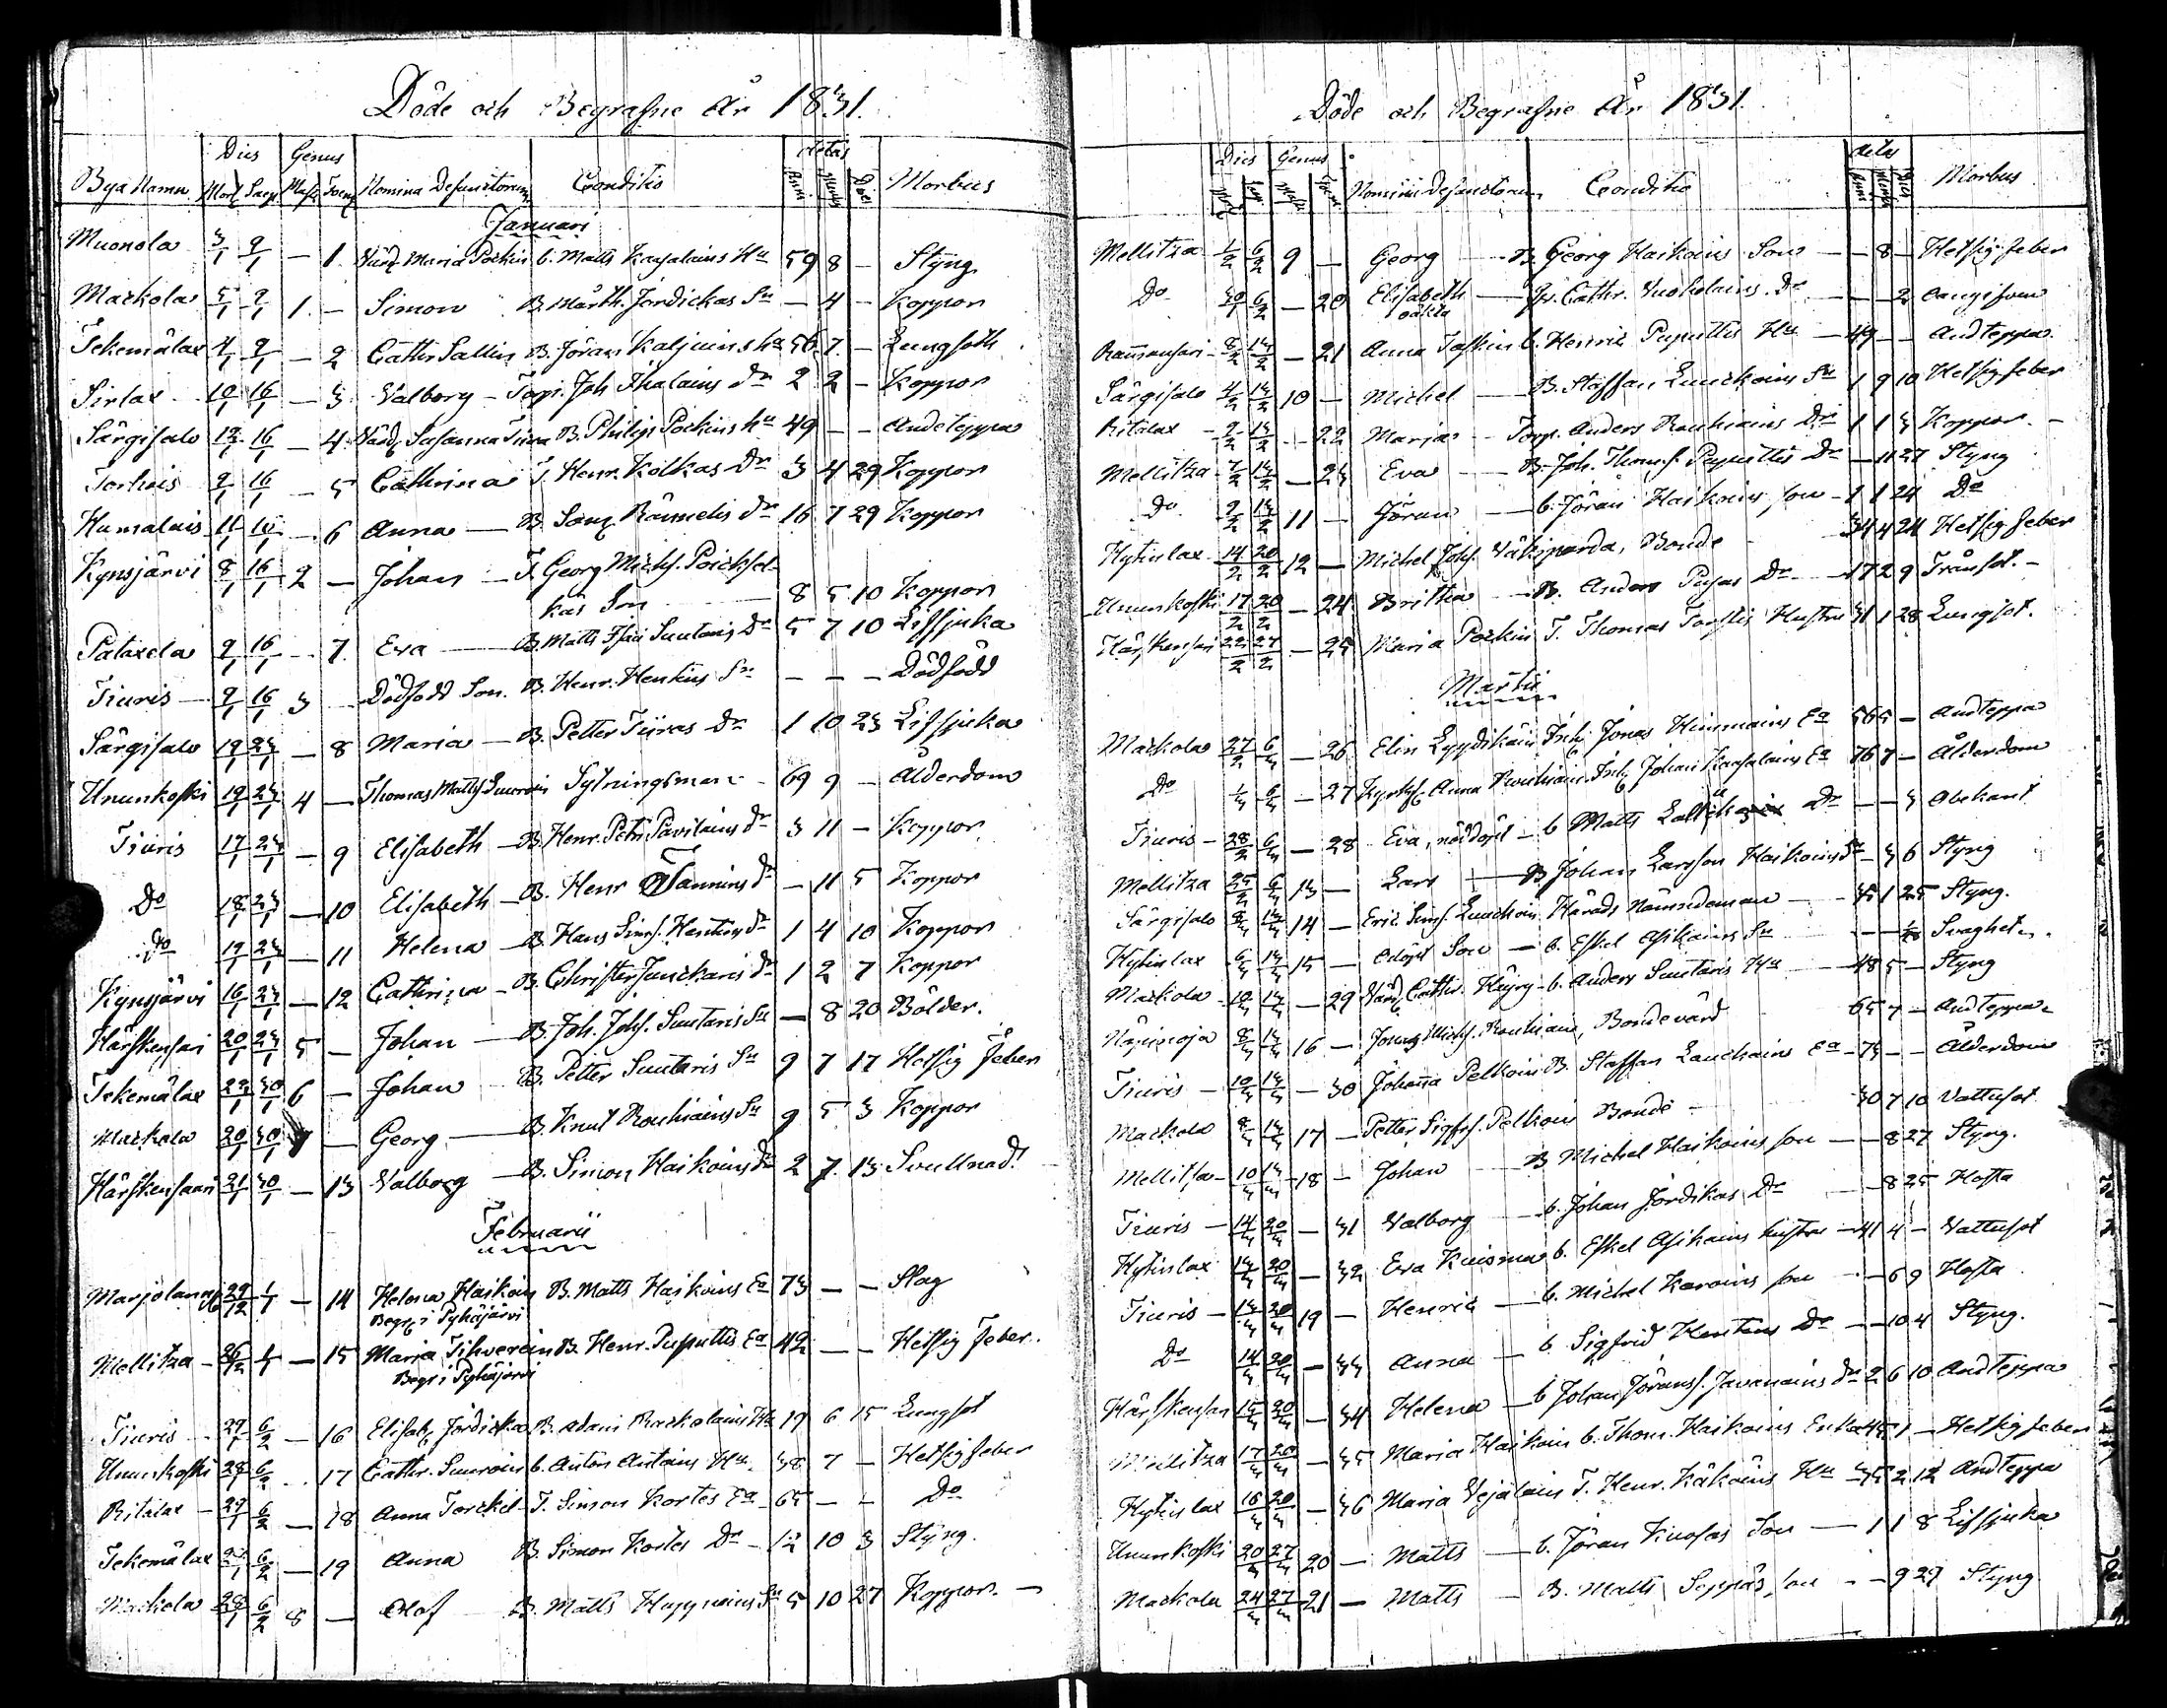 Döde och Begrafne År 1831.
Dies Genus Aetas
Bya Namn Mort Masc Foem Nomina Defunctorum Conditio Anni Mens Dies Morbus
Januari
Muonola 3/1 9/1 — 1. Maria Pockin b. Matts Karjalains Hu 59 8 — Styng
Mackola 5/1 9/1 1. — Simon B. Mårth. Jordickas Sn — 4 — Koppor
Tekemälax 4/1 9/1 — 2 Cathr Sallin B. Jöran Kaljuins hu 56. 7 — Lungsoth
Sirlax 10/1 16/1 — 3 Valborg — Torp. Joh Ihalains dr 2 2 — Koppor
Särgisalo 12/1 16/1 — 4 Susanna Tiira B. Philip Pockins hu 49 — — Andteppa
9/1 16/1 — 5 Cathrina T. Henr. Kolkas Dr 3 4 29 Koppor
Kumalais 11/1 16/1 — 6 Anna — B. Rämelis dr 16 7 29 Koppor
Kynsjärvi 8/1 16/1 2 — Johan — T. Georg Michs.
kas Son 8 5 10 Koppor
9/1 16/1 — 7 Eva — B. Matts Suutaris Dr 5 7 10 Lifsjuka
Tiuris — 9/1 16/1 3 Dödfödd Son. B. Henr. Henttus Sn — — — Dödfödd
Särgisalo 19/1 23/1 — 8 Maria — B. Petter Tiiras Dr 1 10 23 Lifsjuka
Ununkoski 19/1 23/1 4 — Thomas Matts Suuroin Sytningsman — 69 9 — Ålderdom
Tiuris 17/1 23/1 — 9 Elisabeth — B. Henr. Petr. Pavilains dr 3 11 — Koppor
Do 18/1 23/1 — 10 Elisabeth — B. Henr Tannins dr — 11 5 Koppor
Do 19/1 23/1 — 11 Helena — B. Hans Sims. Henttus dr 1 4 10 Koppor
Kynsjärvi 16/1 23/1 — 12 Cathrina — B. Christer Junckaris dr 1 2 7 Koppor
Härskensari 20/1 23/1 5 — Johan — B. Joh. Johs. Suutaris Sn — 8 20 Bölder.
Tekemälax 22/1 30/1 6 — Johan B. Petter Suutaris Sn 9 7 17 Hetsig Feber
Mackola 20/1 30/1 7 — Georg — B. Knut Rouhiains Sn 9 5 3 Koppor
Härskensaari 21/1 30/1 — 13 Valborg — B. Simon Haikoins dr 2 7. 13 Svullnad.
Februarii
29/12 1/1 — 14 Helena Haikoin B. Matts Haikoins Ea 73 — — Slag
Begr. i Pyhäjärvi
Mellitza — 26/12 1/1 — 15 Maria Tihverain B. Henr. Puputtis Ea 42 — — Hetsig Feber.
Begr i Pyhäjärvi
Tiuris 29/1 6/2 — 16 Elisab. Jordicka B. Adam Rackolains Hu 19 6 15 Lungsot
Ununkoski 28/1 6/2 .. 17 Cathr. Suuroin b. Antón Autains Hu. 38 7 — Hetsig feber
Ritalax — 29/1 6/2 — 18 Anna Torckel T. Simon Kortes Ea — 65 — — Do
Tekemälax 6/2 — 19 Anna B. Simon Kortes Dr — 12 10 3 Styng.
Mackola 28/1 6/2 8 — Olof B. Matts Huppuoins Sn 5 10 27 Koppor. —
Döde och Begrafne År 1831.
Dies Genus Aetas
Nomina Defunctorum Conditio Anni Mens Dies Morbus
Mellitza 1/2 6/2 9 — Georg — B. Georg Haikoins Son — — 8 — Hetsig feber
Do 30/1 6/2 — 20 Elisabeth — Cathr. Vuoholains Dr — — 2
oäkta
8/2 13/2 — 21 Anna Taskin b. Henric Puputtis Hu — 49 — — Andteppa.
Särgisalo 4/2 13/2 10 — Michel — B. Staffan Luuckoins Sn 1 9 10 Hetsig feber
Ritalax — 9/2 13/2 — 22 Maria — Torp. Anders Rouhiains Dr 1 1 3 Koppor. —
Mellitza 7/2 13/2 — 23 Eva — B. Joh. Thoms. Puputtis Dr — 11 27 Styng
Do 9/2 13/2 11 — Jöran — b. Jöran Haikoins son — 1 1 24 Do
Kytinlax 14/2 20/2 12 — Michel Johs. Väkiparda, Bonde 34 4 24 Hetsig feber
Ununkoski 17/2 20/2 — 24 Britha — B. Anders Dr — 17 2 9 Trånsot. —
Härskensari 22/2 27/2 — 25 Maria Pockin T. Thomas Hustru 31 1 28 Lungsot.
Martii
Mackola 27/2 6/3 — 26 Elin Lyydikäin Jonas Himmains Ea 56 5 — Andteppa
Do 1/3 6/3 — 27 Anna Rouhiain Johan Karjalains Ea 76 7 — Ålderdom
Tiuris — 28/2 6/3 — 28 Eva, nöddöpt — b Matts Dr — — 3 Obekant
Mellitza 25/2 6/3 13 — Lars — B Johan Larsson Haikoins Sn — 3 6 Styng
Särgisalo 8/3 13/3 14 — Eric Sims. Luuckoin Härads Nämndeman — 45 1 25 Styng.
Kytinlax 6/3 13/3 15 — odöpt Son — b. Eskel Asikains Sn — — Svaghet.
Mackola 10/3 13/3 — 29 Cathr. Käyry — b. Anders Suutaris Hu — 48 5 — Styng
8/3 13/3 16 — Jonas Michs. Rouhiain, Bondevärd 65 7 — Andteppa.
Tiuris — 10/3 13/3 — 30 Johanna Pelkoin B. Staffan Lauckains Ea — 73 — — Ålderdom
Mackola 8/3 13/3 17 — Petter Sigfrs. Pelkoin Bonde 30 7 10 Vattusot
Mellitza — 10/3 13/3 18 — Johan B Michel Haikoins son — — 8 27 Styng.
Tiuris — 14/3 20/3 — 31 Valborg — b. Johan Jordikas Dr — 8 25 Hosta
Kytinlax 13/3 20/3 — 32 Eva Kuisma b. Eskel Asikains hustru — 41 4 — Vattusot
Tiuris — 13/3 20/3 19 — Henric — b. Michel Karoins son — 6 9 Hosta
Do 14/3 20/3 — 33 Anna — b. Sigfrid Henttus Dr — — 10 4 Styng.
Härskensari 15/3 20/3 — 34 Helena — b Johan Jöranss. Javanains dr 2 6 10 Andteppa
Mellitza 17/3 20/3 — 35 Maria Haikoin b. Thom. Haikoins Enka 1 — Hetsig feber
Kytinlax 16/3 20/3 — 36 Maria Vejälain T. Henr. Käkoins Hu 35 2 12 Andteppa
Ununkoski 20/3 27/3 20 — Matts — b. Jöran Kuosas Son — 1 1 8 Lifsjuka
Mackola 24/3 27/3 21 — Matts — B. Matts Seppäs son — — 9 29 Styng